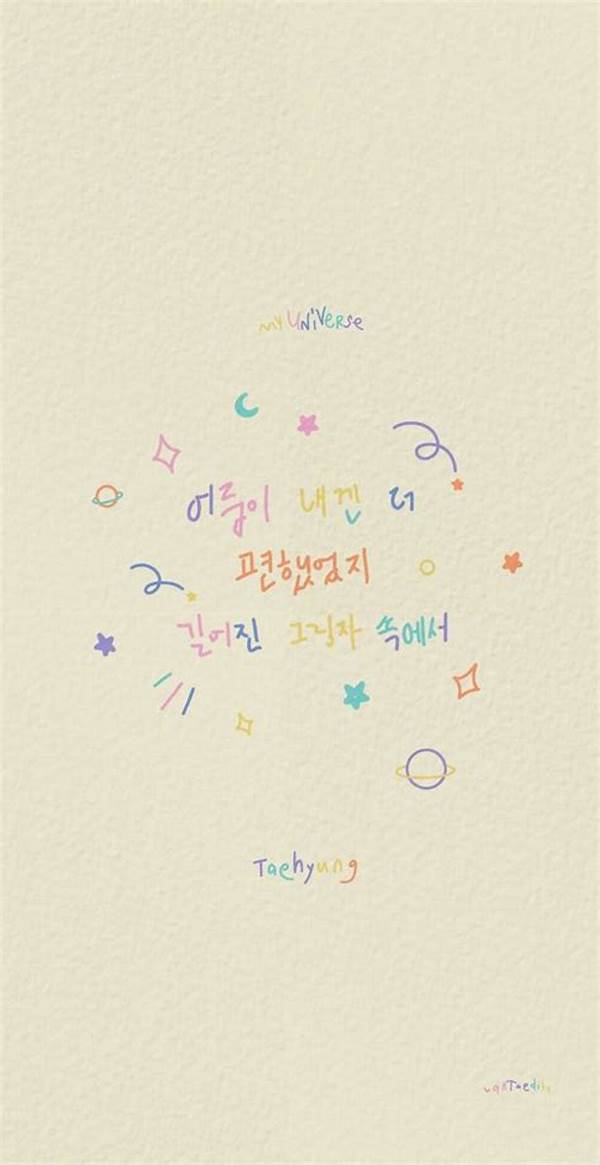 MY UNIVERSE
어둠이 내겐 더
편했었지
길어진 그림자 속에서
Taehyung